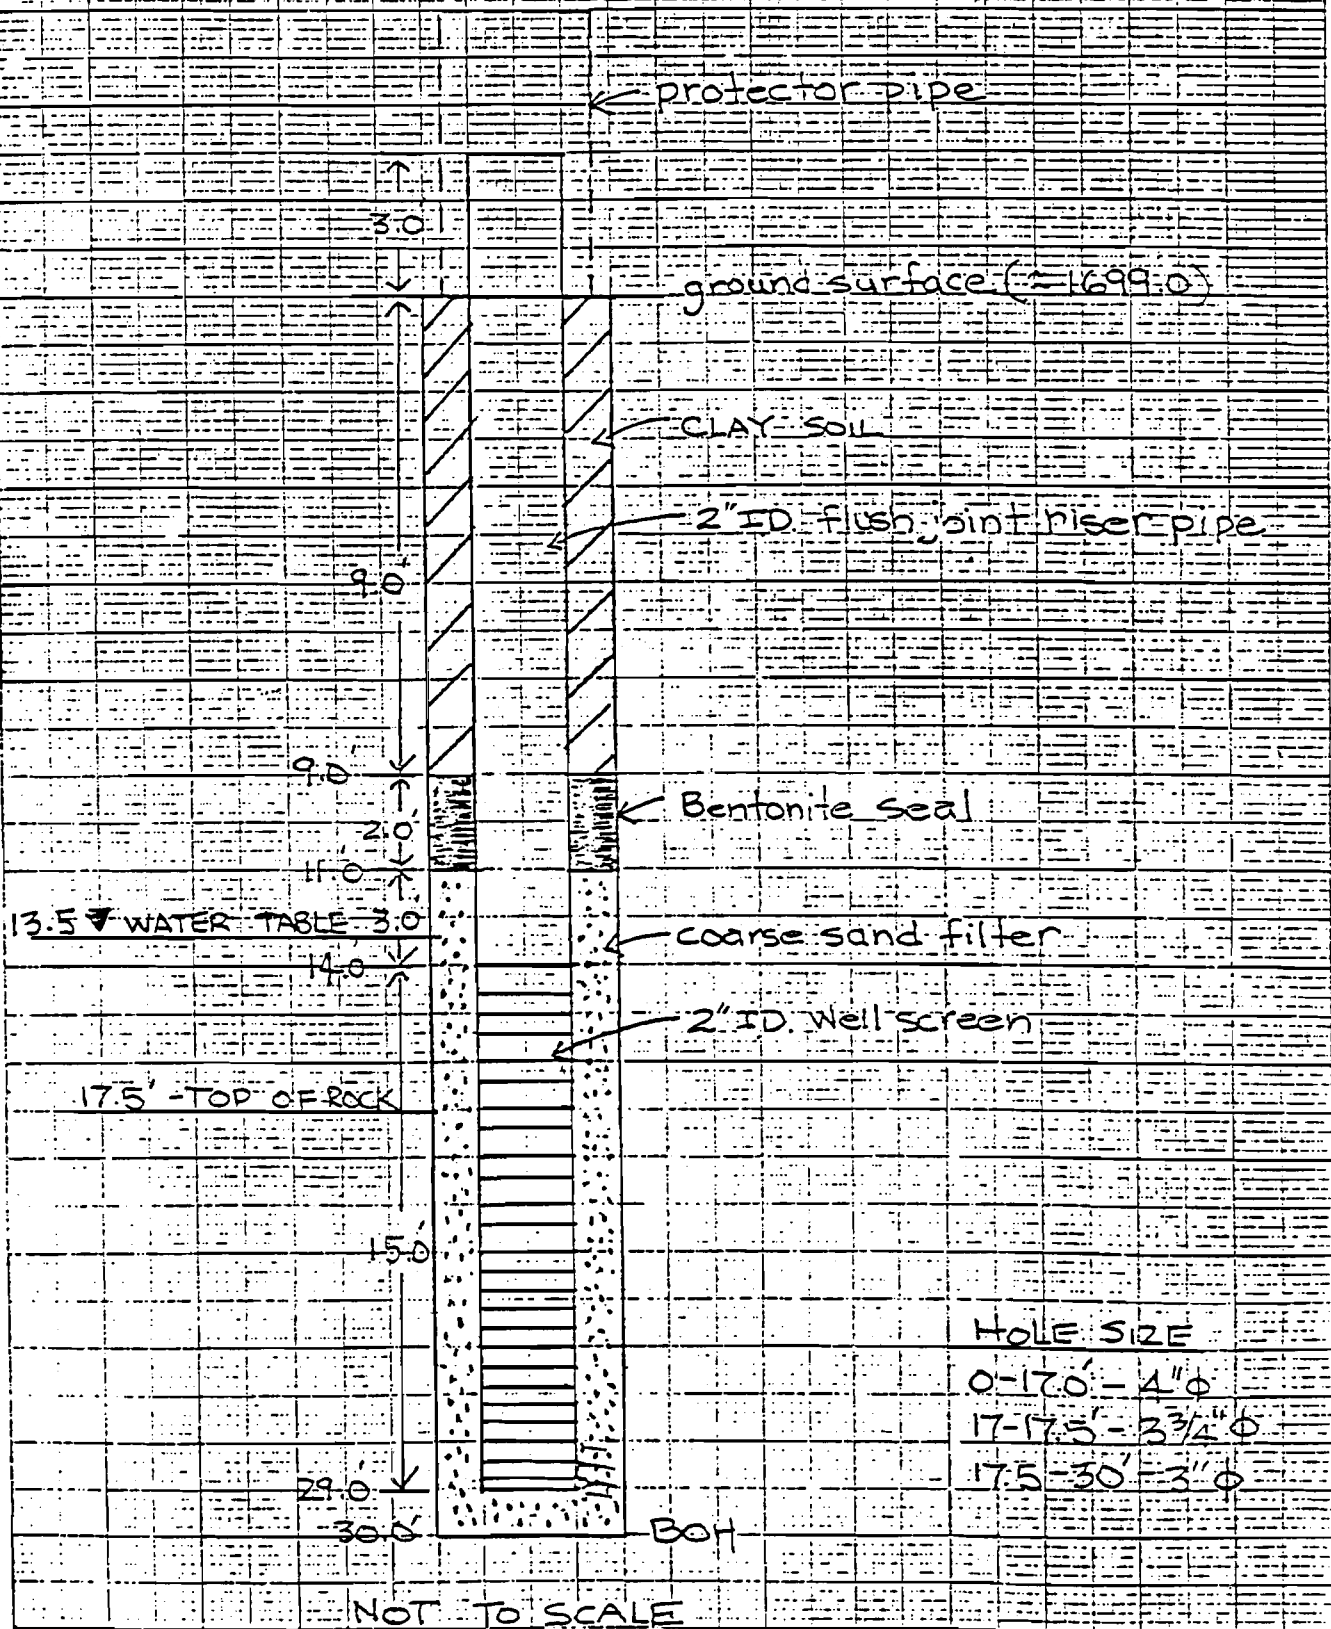 protector pipe
3.0
ground surface (≈1699.0)
CLAY SOIL
2" ID flush joint riser pipe
9.0'
9.0'
Bentonite seal
2.0'
11.0'
13.5 ▼ WATER TABLE 3.0'
coarse sand filter
14.0'
2" ID. Well screen
17.5' - TOP OF ROCK
15.0'
HOLE SIZE
0-17.0' - 4" φ
17-17.5' - 3 3/4" φ
17.5-30' - 3" φ
29.0'
30.0'
BOH
NOT TO SCALE